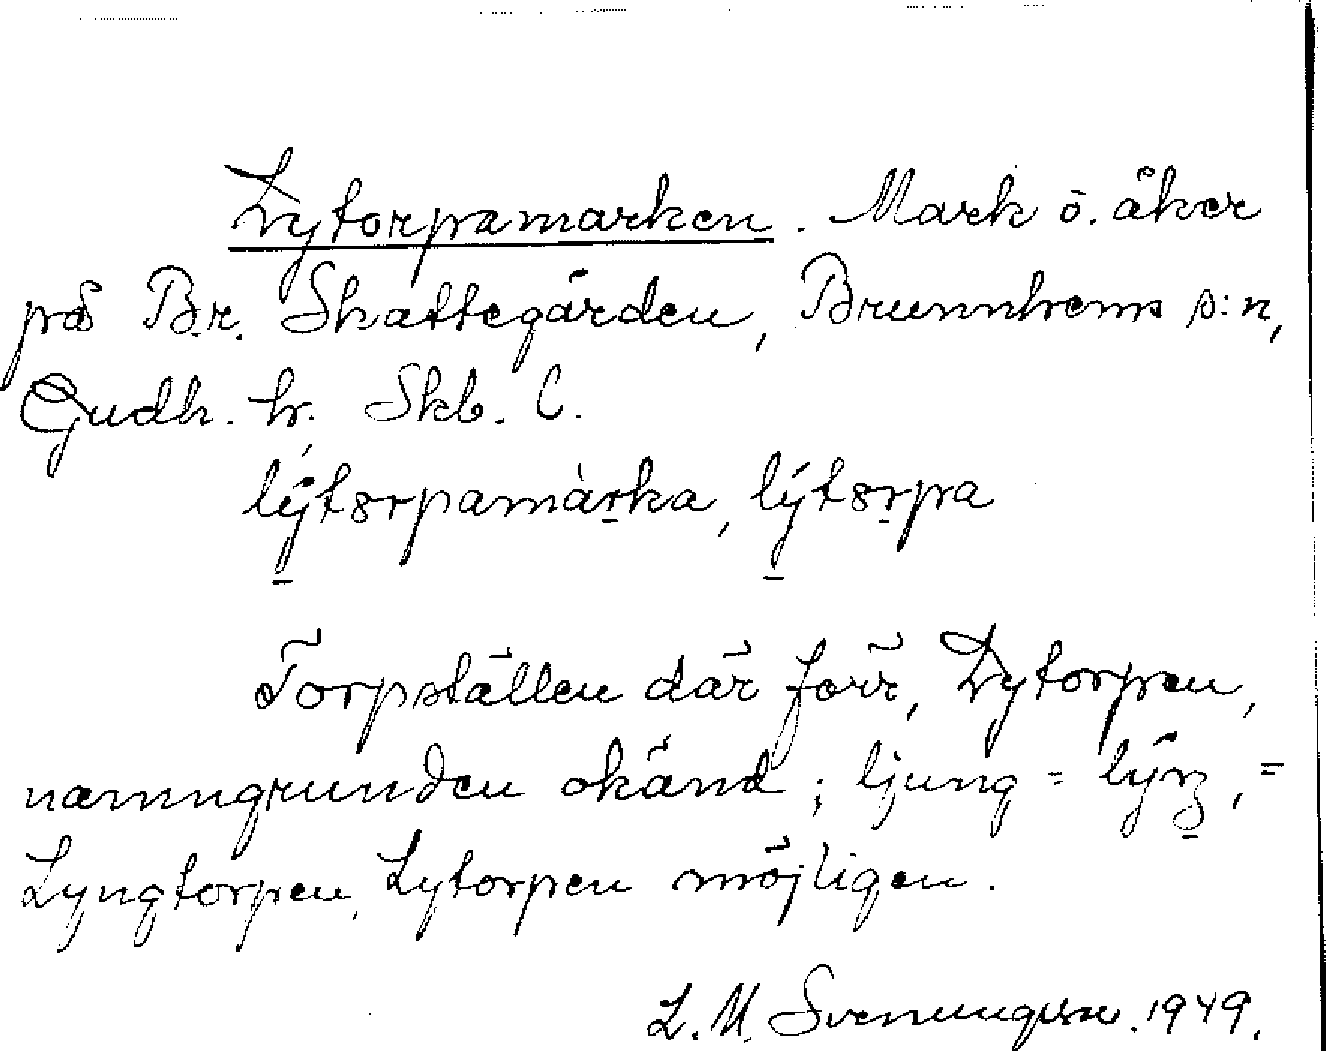 Lytorpamarken. Mark o. åker
på Br. Skattegården, Brunnhems s:n,
Gudh. hr. Skb. C.
lýtorpamàrka, lýtorpa
Torpställen där förr, Lytorpen,
namngrunden okänd; ljung = lyng, =
Lyngtorpen, Lytorpen möjligen.
L. M. Svenungsson. 1949.